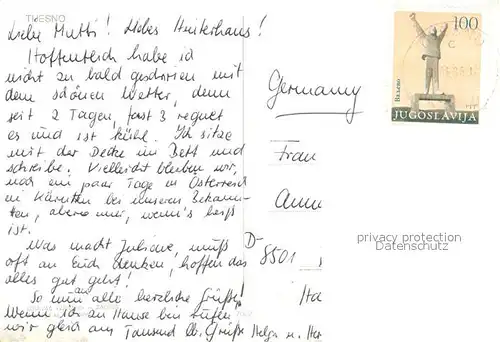 TIJESNO
Liebe Mutti! Liebes Hinterhaus!
Hoffentlich habe ich
nicht zu bald geschrieben mit
dem schönen Wetter, denn
seit 2 Tagen, fast 3 regnet
es und ist kühl. Ich sitze
mit der Decke im Bett und
schreibe. Vielleicht bleiben wir,
noch ein paar Tage in Österreich
in Kärnten bei unseren Bekann-
ten, aber nur, wenn's heiß
ist.
Was macht Juliane, muß
oft an Euch denken, hoffen das
alles gut geht!
So nun allo herzliche Grüße!
Wenn ich zu Hause bin rufen
wir gleich an, Tausend lb. Grüße Helga u. Her
100
BEAĐEVO
PTT
JUGOSLAVIJA
Germany
Frau
Anna
D-
8501
privacy protection
Datenschutz
Ha